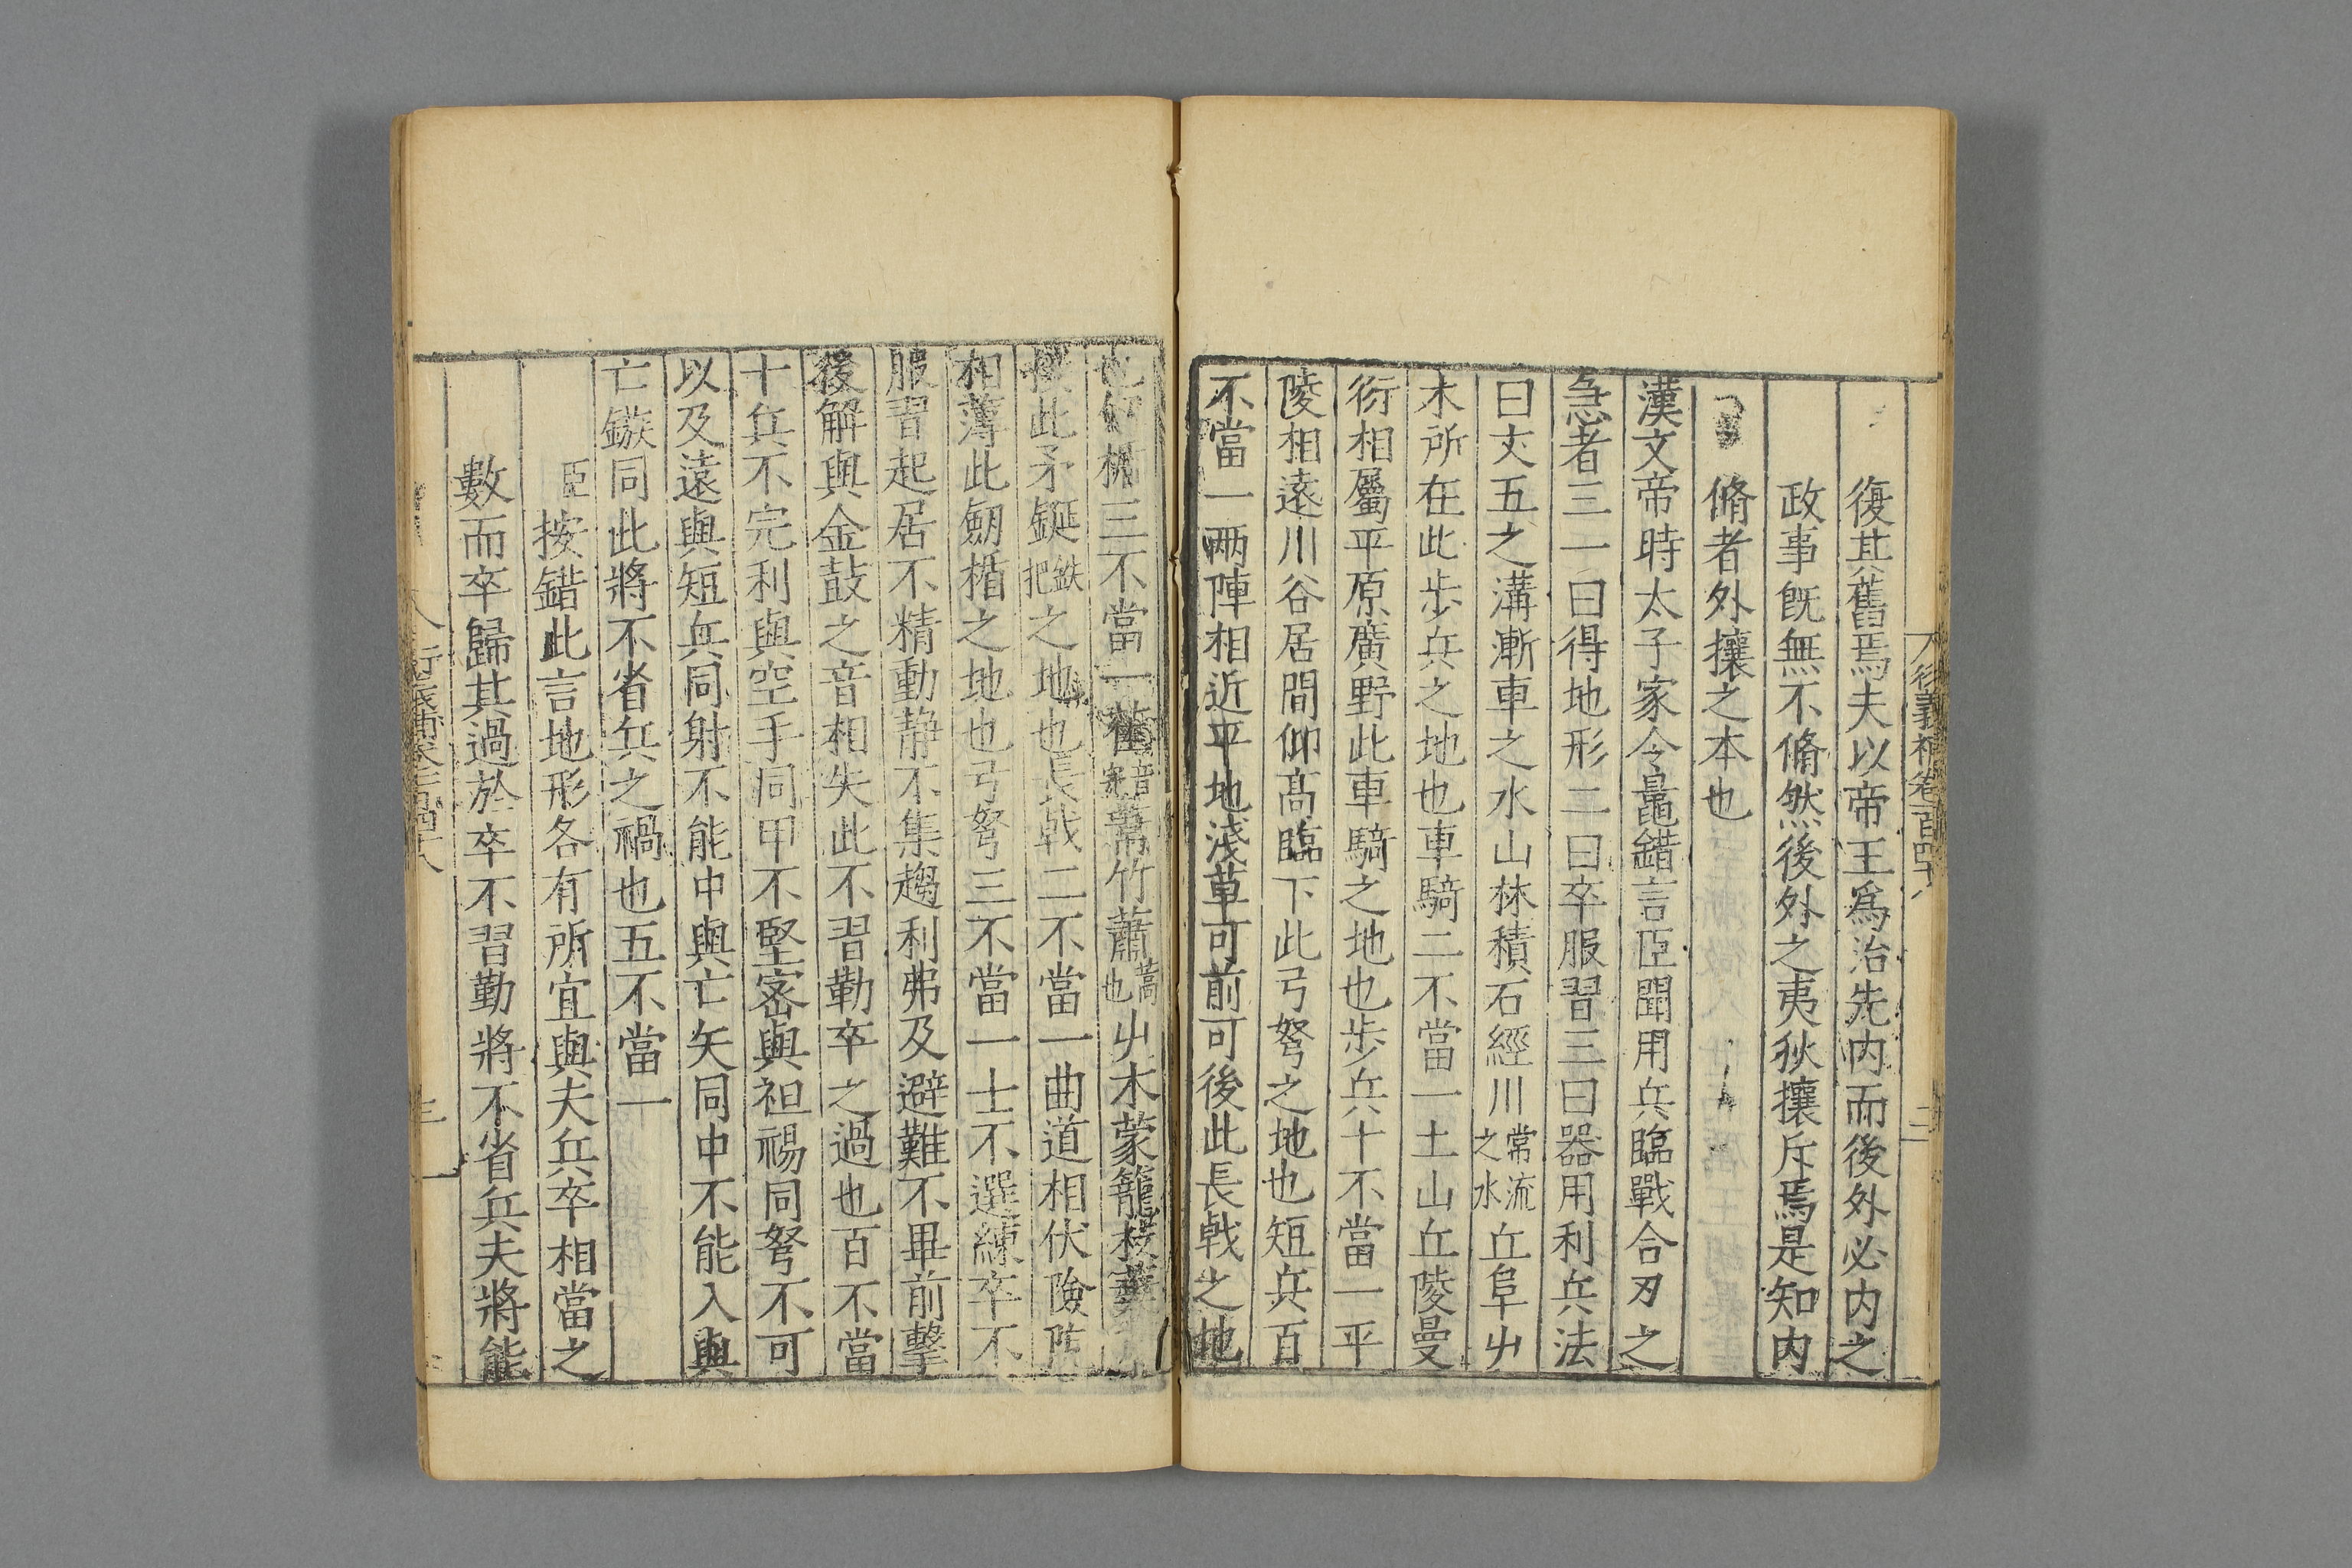 復其舊焉夫以帝王爲治先内而後外必内之
政事旣無不脩然後外之夷狄攘斥焉是知内
脩者外攘之本也
漢文帝時太子家令鼂錯言臣聞用兵臨戰合刃之
急者三一曰得地形二曰卒服習三曰器用利兵法
曰丈五之溝漸車之水山林積石經川常流之水丘阜屮
木所在此歩兵之地也車騎二不當一土山丘陵曼
衍相屬平原廣野此車騎之地也歩兵十不當一平
陵相遠川谷居間仰髙臨下此弓弩之地也短兵百
不當一兩陣相近平地淺草可前可後此長㦸之地
也 楯三不當一萑音完葦竹蕭蒿也屮木蒙籠枝葉
接此矛鋋鉄把之地也長㦸二不當一曲道相伏險阸
相薄此劒楯之地也弓弩三不當一士不選練卒不
服習起居不精動静不集趨利弗及避難不畢前擊
後解與金鼓之音相失此不習勒卒之過也百不當
十兵不完利與空手同甲不堅密與袒裼同弩不可
以及遠與短兵同射不能中與亡矢同中不能入與
亡鏃同此將不省兵之禍也五不當一
臣按錯此言地形各有所宜與夫兵卒相當之
數而卒歸其過於卒不習勤將不省兵夫將能
衍義補卷百四十八
二
衍義補卷一百四十八
三